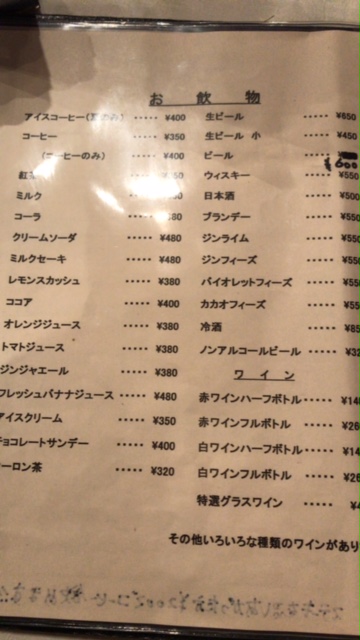 お飲物
アイスコーヒー( のみ) ····· ¥400
コーヒー ····· ¥350
(コーヒーのみ) ····· ¥400
紅
ミルク
コーラ 80
クリームソーダ ····· ¥480
ミルクセーキ ····· ¥480
レモンスカッシュ ····· ¥380
ココア ····· ¥400
オレンジジュース ····· ¥380
トマトジュース ····· ¥380
ジンジャエール ····· ¥380
フレッシュバナナジュース ····· ¥480
アイスクリーム ····· ¥350
チョコレートサンデー ····· ¥400
ーロン茶 ····· ¥320
生ビール ····· ¥650
生ビール 小 ····· ¥450
ビール ····· ¥600
ウィスキー ····· ¥550
日本酒 ····· ¥500
ブランデー ····· ¥55
ジンライム ····· ¥55
ジンフィーズ ····· ¥55
バイオレットフィーズ ····· ¥55
カカオフィーズ ····· ¥55
冷酒 ····· ¥85
ノンアルコールビール ····· ¥32
ワイン
赤ワインハーフボトル ····· ¥14
赤ワインフルボトル ····· ¥26
白ワインハーフボトル ····· ¥14
白ワインフルボトル ····· ¥26
特選グラスワイン ····· ¥4
その他いろいろな種類のワインがあり